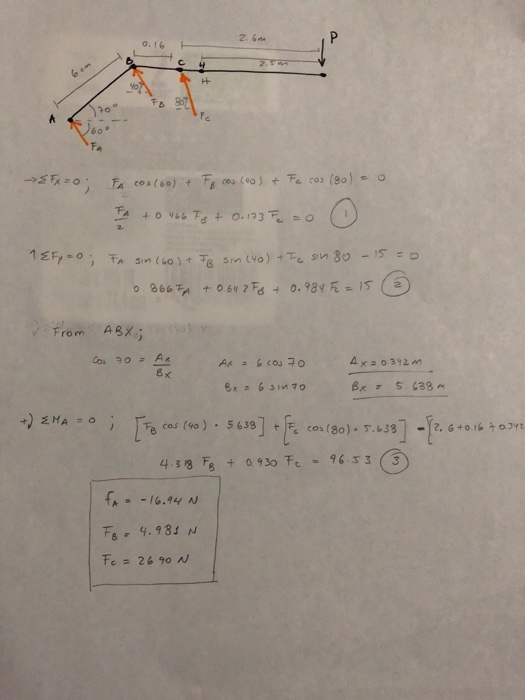 0.16
2.6m
P
6 cm
B
C
H
2.5m
H
40°
F_B
80°
F_C
A
70°
60°
F_A
→ΣFx=0; F_A cos(60) + F_B cos(40) + F_C cos(80) = 0
F_A/2 + 0.466 F_B + 0.173 F_C = 0 (1)
↑ΣFy=0; F_A sin(60) + F_B sin(40) + F_C sin 80 - 15 = 0
0.866 F_A + 0.642 F_B + 0.984 F_C = 15 (2)
From ABX;
Cos 70 = Ax/Bx Ax = 6 cos 70 Ax = 0.342 m
Bx = 6 sin 70 Bx = 5.638 m
+) ΣM_A = 0 ; [F_B cos(40) · 5.638] + [F_C cos(80) · 5.638] - [2.6+0.16+0.342
4.318 F_B + 0.930 F_C = 46.53 (3)
f_A = -16.94 N
F_B = 4.981 N
F_C = 26.90 N